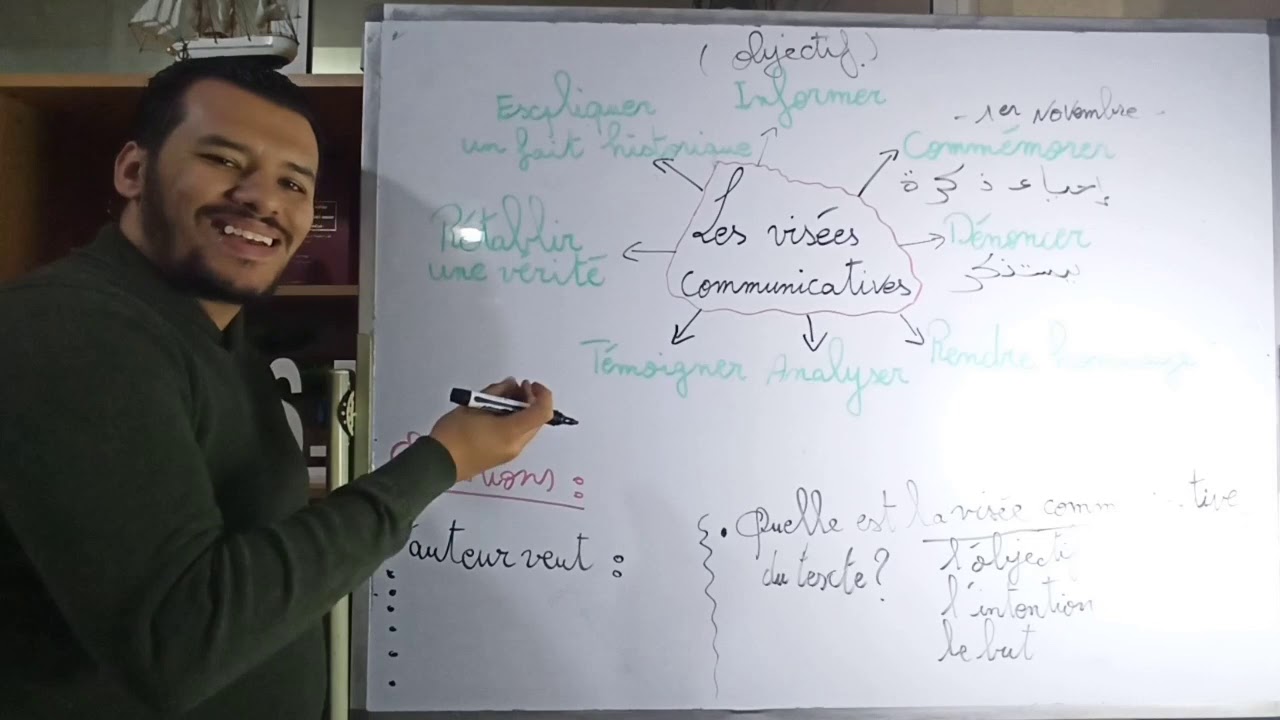 (objectif)
Informer
Expliquer
un fait historique
- 1er Novembre -
Commémorer
إحياء ذكرة
Rétablir
une vérité
Les visées
communicatives
Dénoncer
يستنكر
Témoigner
Analyser
Rendre hommage
auteur veut :
• Quelle est la visée
du texte ?
l'objectif
l'intention
le but